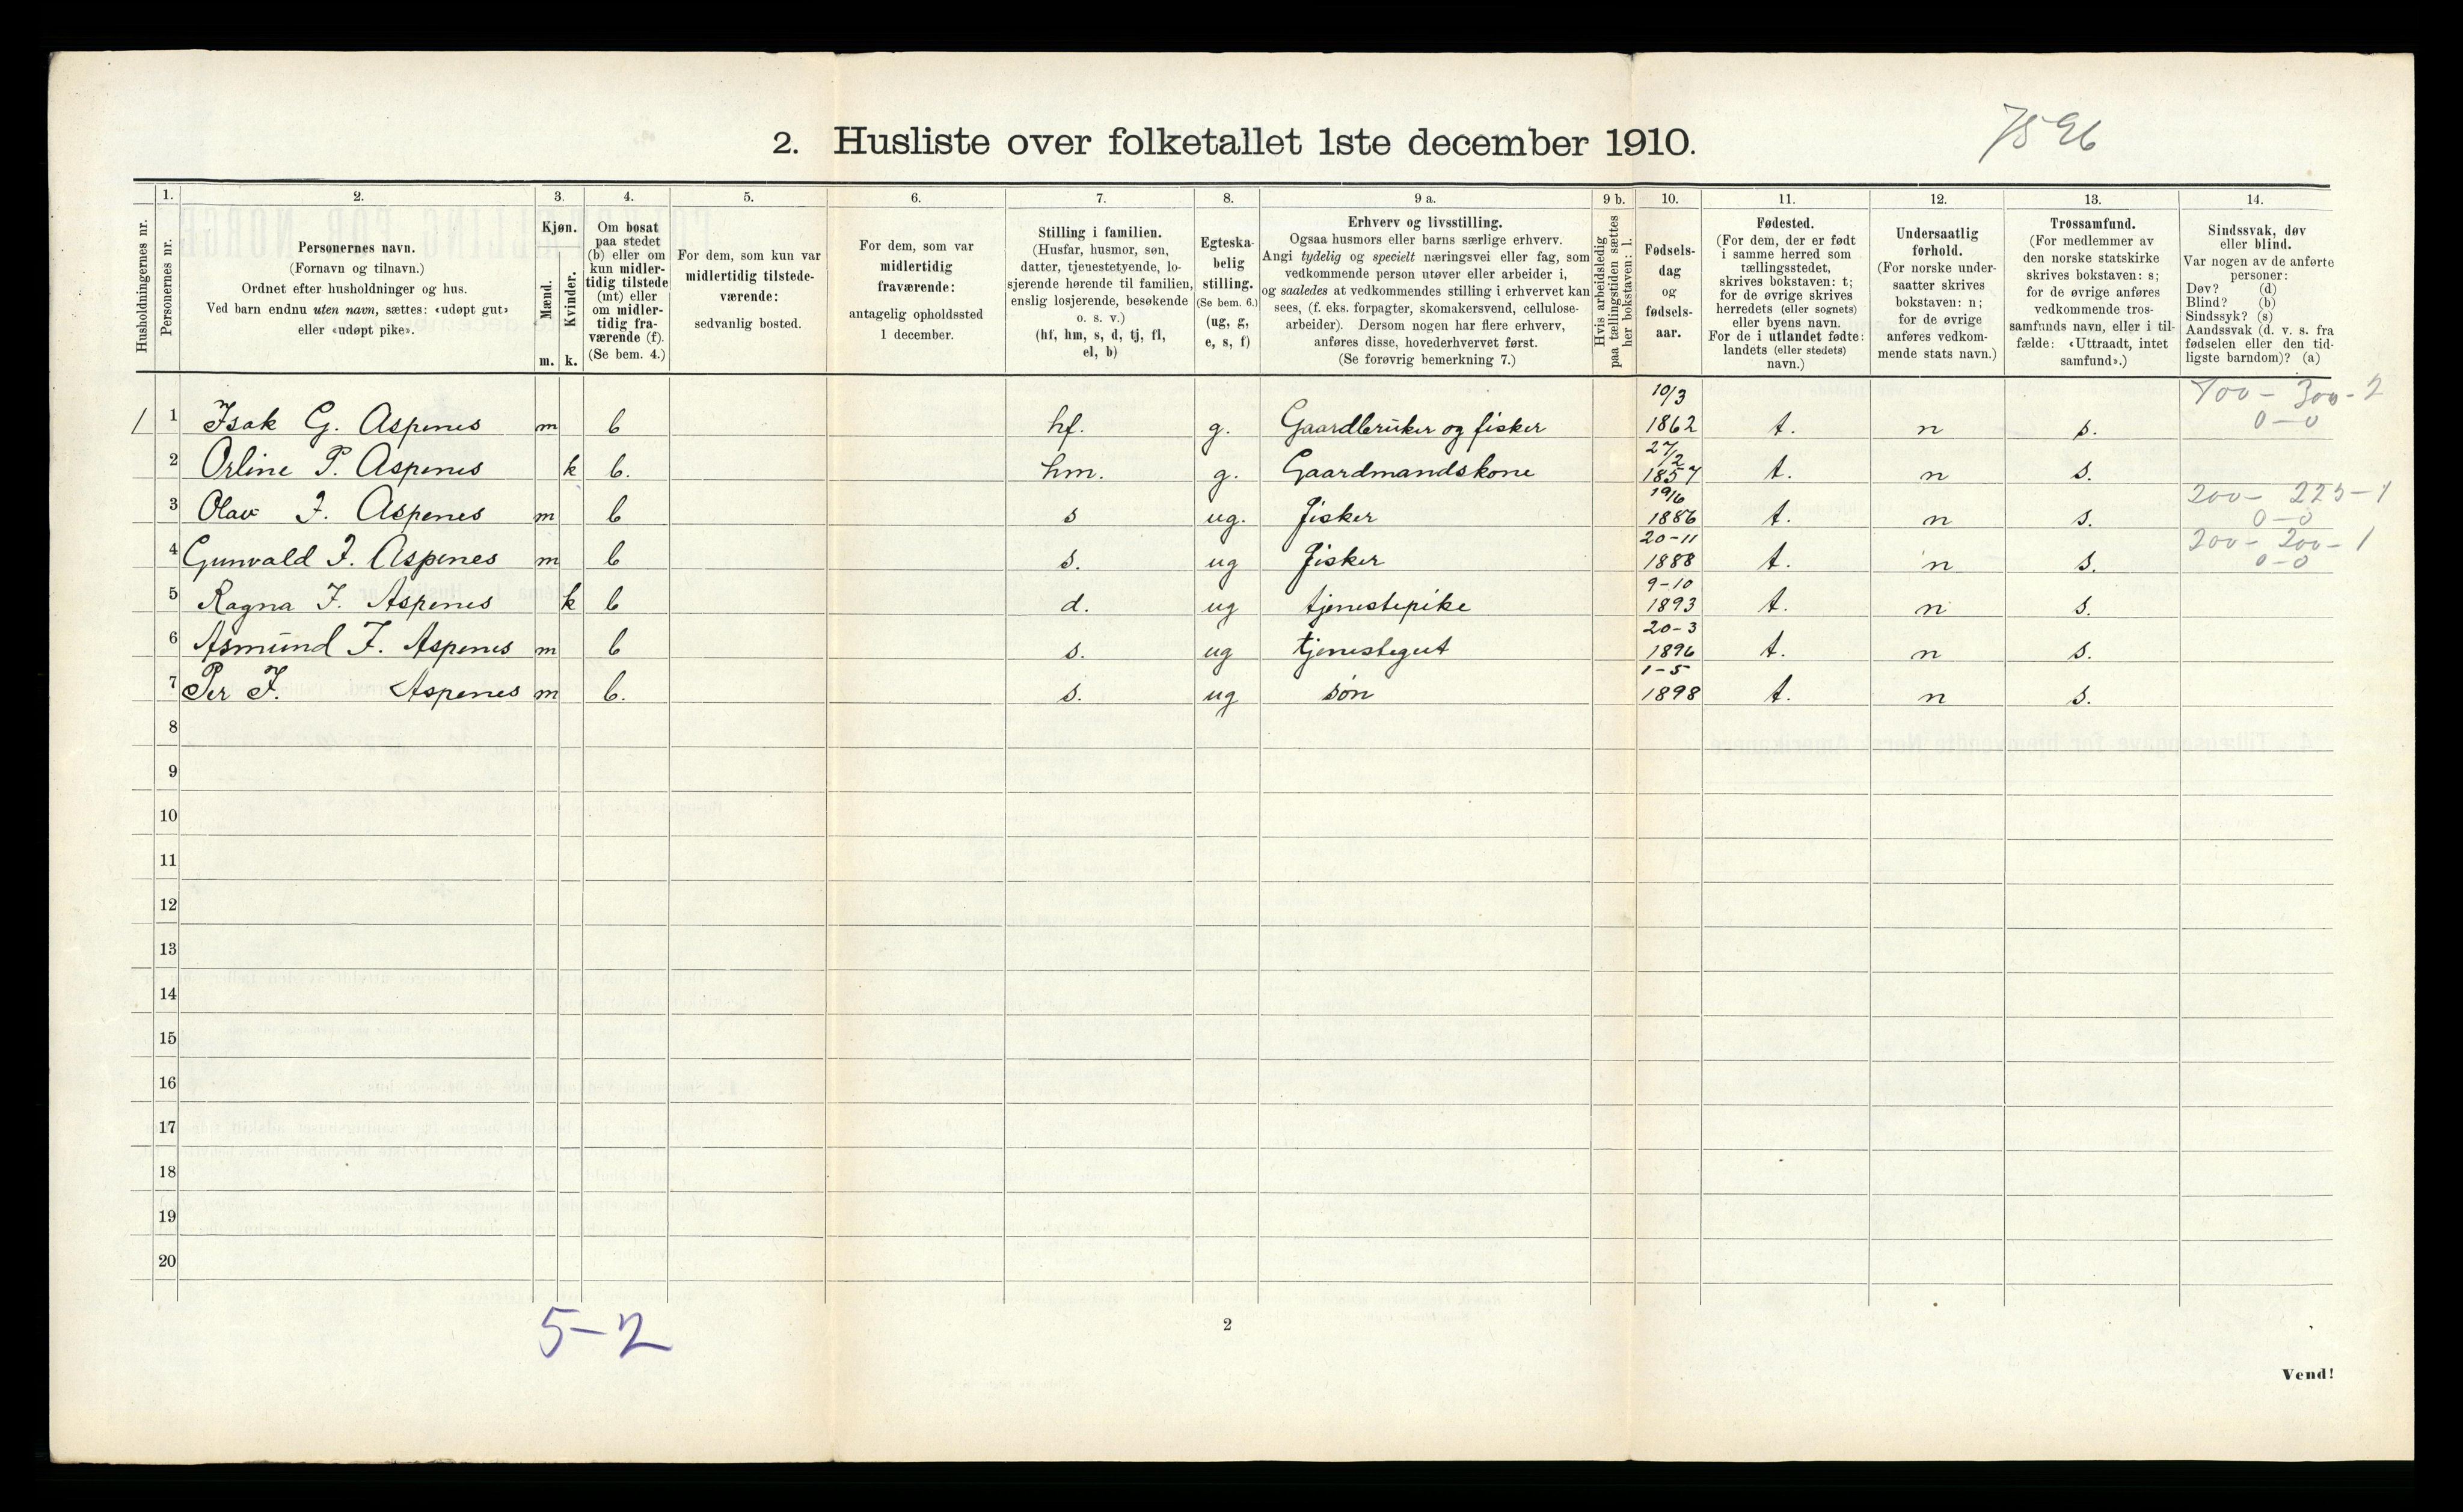 7596
2. Husliste over folketallet 1ste december 1910.
Husholdningernes nr.
1.
Personernes nr.
2.
Personernes navn.
(Fornavn og tilnavn.)
Ordnet efter husholdninger og hus.
Ved barn endnu uten navn, sættes: «udøpt gut»
eller «udøpt pike».
3.
Kjøn.
Mænd.
Kvinder.
m.
k.
4.
Om bosat
paa stedet
(b) eller om
kun midler-
tidig tilstede
(mt) eller
om midler-
tidig fra-
værende (f).
(Se bem. 4.)
5.
For dem, som kun var
midlertidig tilstede-
værende:
sedvanlig bosted.
6.
For dem, som var
midlertidig
fraværende:
antagelig opholdssted
1 december.
7.
Stilling i familien.
(Husfar, husmor, søn,
datter, tjenestetyende, lo-
sjerende hørende til familien,
enslig losjerende, besøkende
o. s. v.)
(hf, hm, s, d, tj, fl,
el, b)
8.
Egteska-
belig
stilling.
(Se bem. 6.)
(ug, g,
e, s, f)
9 a.
Erhverv og livsstilling.
Ogsaa husmors eller barns særlige erhverv.
Angi tydelig og specielt næringsvei eller fag, som
vedkommende person utøver eller arbeider i,
og saaledes at vedkommendes stilling i erhvervet kan
sees, (f. eks. forpagter, skomakersvend, cellulose-
arbeider). Dersom nogen har flere erhverv,
anføres disse, hovederhvervet først.
(Se forøvrig bemerkning 7.)
9 b.
Hvis arbeidsledig
paa tællingstiden sættes
her bokstaven: l.
10.
Fødsels-
dag
og
fødsels-
aar.
11.
Fødested.
(For dem, der er født
i samme herred som
tællingsstedet,
skrives bokstaven: t;
for de øvrige skrives
herredets (eller sognets)
eller byens navn.
For de i utlandet fødte:
landets (eller stedets)
navn.)
12.
Undersaatlig
forhold.
(For norske under-
saatter skrives
bokstaven: n;
for de øvrige
anføres vedkom-
mende stats navn.)
13.
Trossamfund.
(For medlemmer av
den norske statskirke
skrives bokstaven: s;
for de øvrige anføres
vedkommende tros-
samfunds navn, eller i til-
fælde: «Uttraadt, intet
samfund».)
14.
Sindssvak, døv
eller blind.
Var nogen av de anførte
personer:
Døv? (d)
Blind? (b)
Sindssyk? (s)
Aandssvak (d. v. s. fra
fødselen eller den tid-
ligste barndom)? (a)
1 1 Isak G. Aspenes m b hf. g. Gaardbruker og fisker 10/3 1862 t. n s. 700 - 300 - 2 0-0
2 Orline P. Aspenes k b. hm. g. Gaardmandskone 27/2 1857 t. n s.
3 Olav I. Aspenes m b s ug. fisker 19/6 1886 t. n s. 200 - 225 - 1 0-0
4 Gunvald I. Aspenes m b s. ug fisker 20-11 1888 t. n s. 200 - 200 - 1 0-0
5 Ragna I. Aspenes k b d. ug tjenestepike 9-10 1893 t. n s.
6 Asmund I. Aspenes m b s. ug tjenestegut 20-3 1896 t. n s.
7 Per I. Aspenes m b. s. ug søn 1-5 1898 t. n s.
8
9
10
11
12
13
14
15
16
17
18
19
20
5-2
2
Vend!